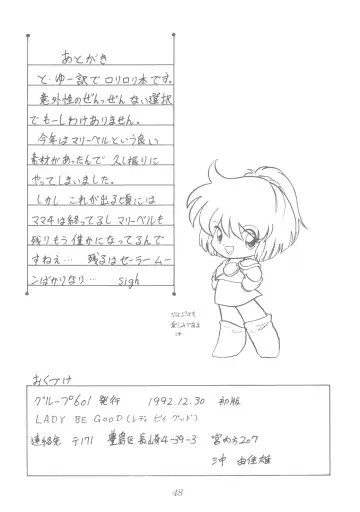 あとがき
と・ゆー訳でロリロリ本です。
意外性のぜんっぜんない選択
でもーしわけありません。
今年はマリーベルという良い
素材があったんで久し振りに
やってしまいました。
しかしこれが出る頃には
ママ4は終ってるしマリーベルも
残りもう僅かになってるんで
すねえ… 残るはセーラームー
ンばかりなり… sigh
おくつけ
グループ601 発行 1992.12.30 初版
LADY BE GOOD (レディ ビィ グッド)
連絡先 〒171 豊島区長崎4-39-3 宮内方207
沖 由佳雄
48